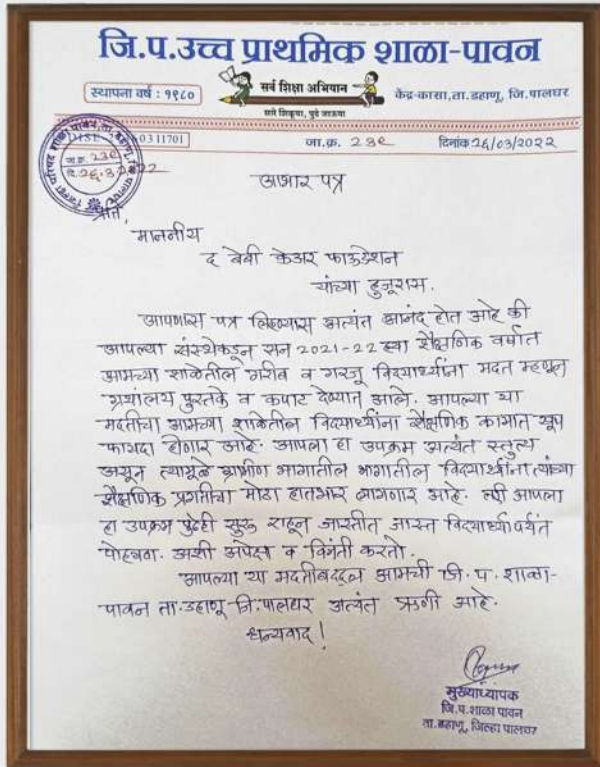 जि.प.उच्च प्राथमिक शाळा-पावन
स्थापना वर्ष : १९८०
सर्व शिक्षा अभियान
सारे शिकूया, पुढे जाऊया
केंद्र-कासा,ता.डहाणू, जि.पालघर
0311701
जा.क्र. 238
दिनांक 26/03/2022
आभार पत्र
प्रति,
माननीय
द बेबी केअर फाऊंडेशन
यांच्या हुजूरास.
आपणास पत्र लिहण्यास अत्यंत आनंद होत आहे की
आपल्या संस्थेकडून सन 2021-22 ह्या शैक्षणिक वर्षात
आमच्या शाळेतील गरीब व गरजू विद्यार्थ्यांना मदत म्हणून
ग्रंथालय पुस्तके व कपाट देण्यात आले. आपल्या या
मदतीचा आमच्या शाळेतील विद्यार्थ्यांना शैक्षणिक कामात खूप
फायदा होणार आहे. आपला हा उपक्रम अत्यंत स्तुत्य
असून त्यामूळे ग्रामीण भागातील भागातील विद्यार्थ्यांना त्यांच्या
शैक्षणिक प्रगतीचा मोठा हातभार लागणार आहे. तरी आपला
हा उपक्रम पुढेही सुरू राहून जास्तीत जास्त विद्यार्थ्यांपर्यंत
पोहचावा. अशी अपेक्षा व विनंती करतो.
आपल्या या मदतीबद्दल आमची जि. प. शाळा-
पावन ता.डहाणू जि.पालघर अत्यंत ऋणी आहे.
धन्यवाद!
मुख्याध्यापक
जि.प.शाळा पावन
ता.डहाणू, जिल्हा पालघर